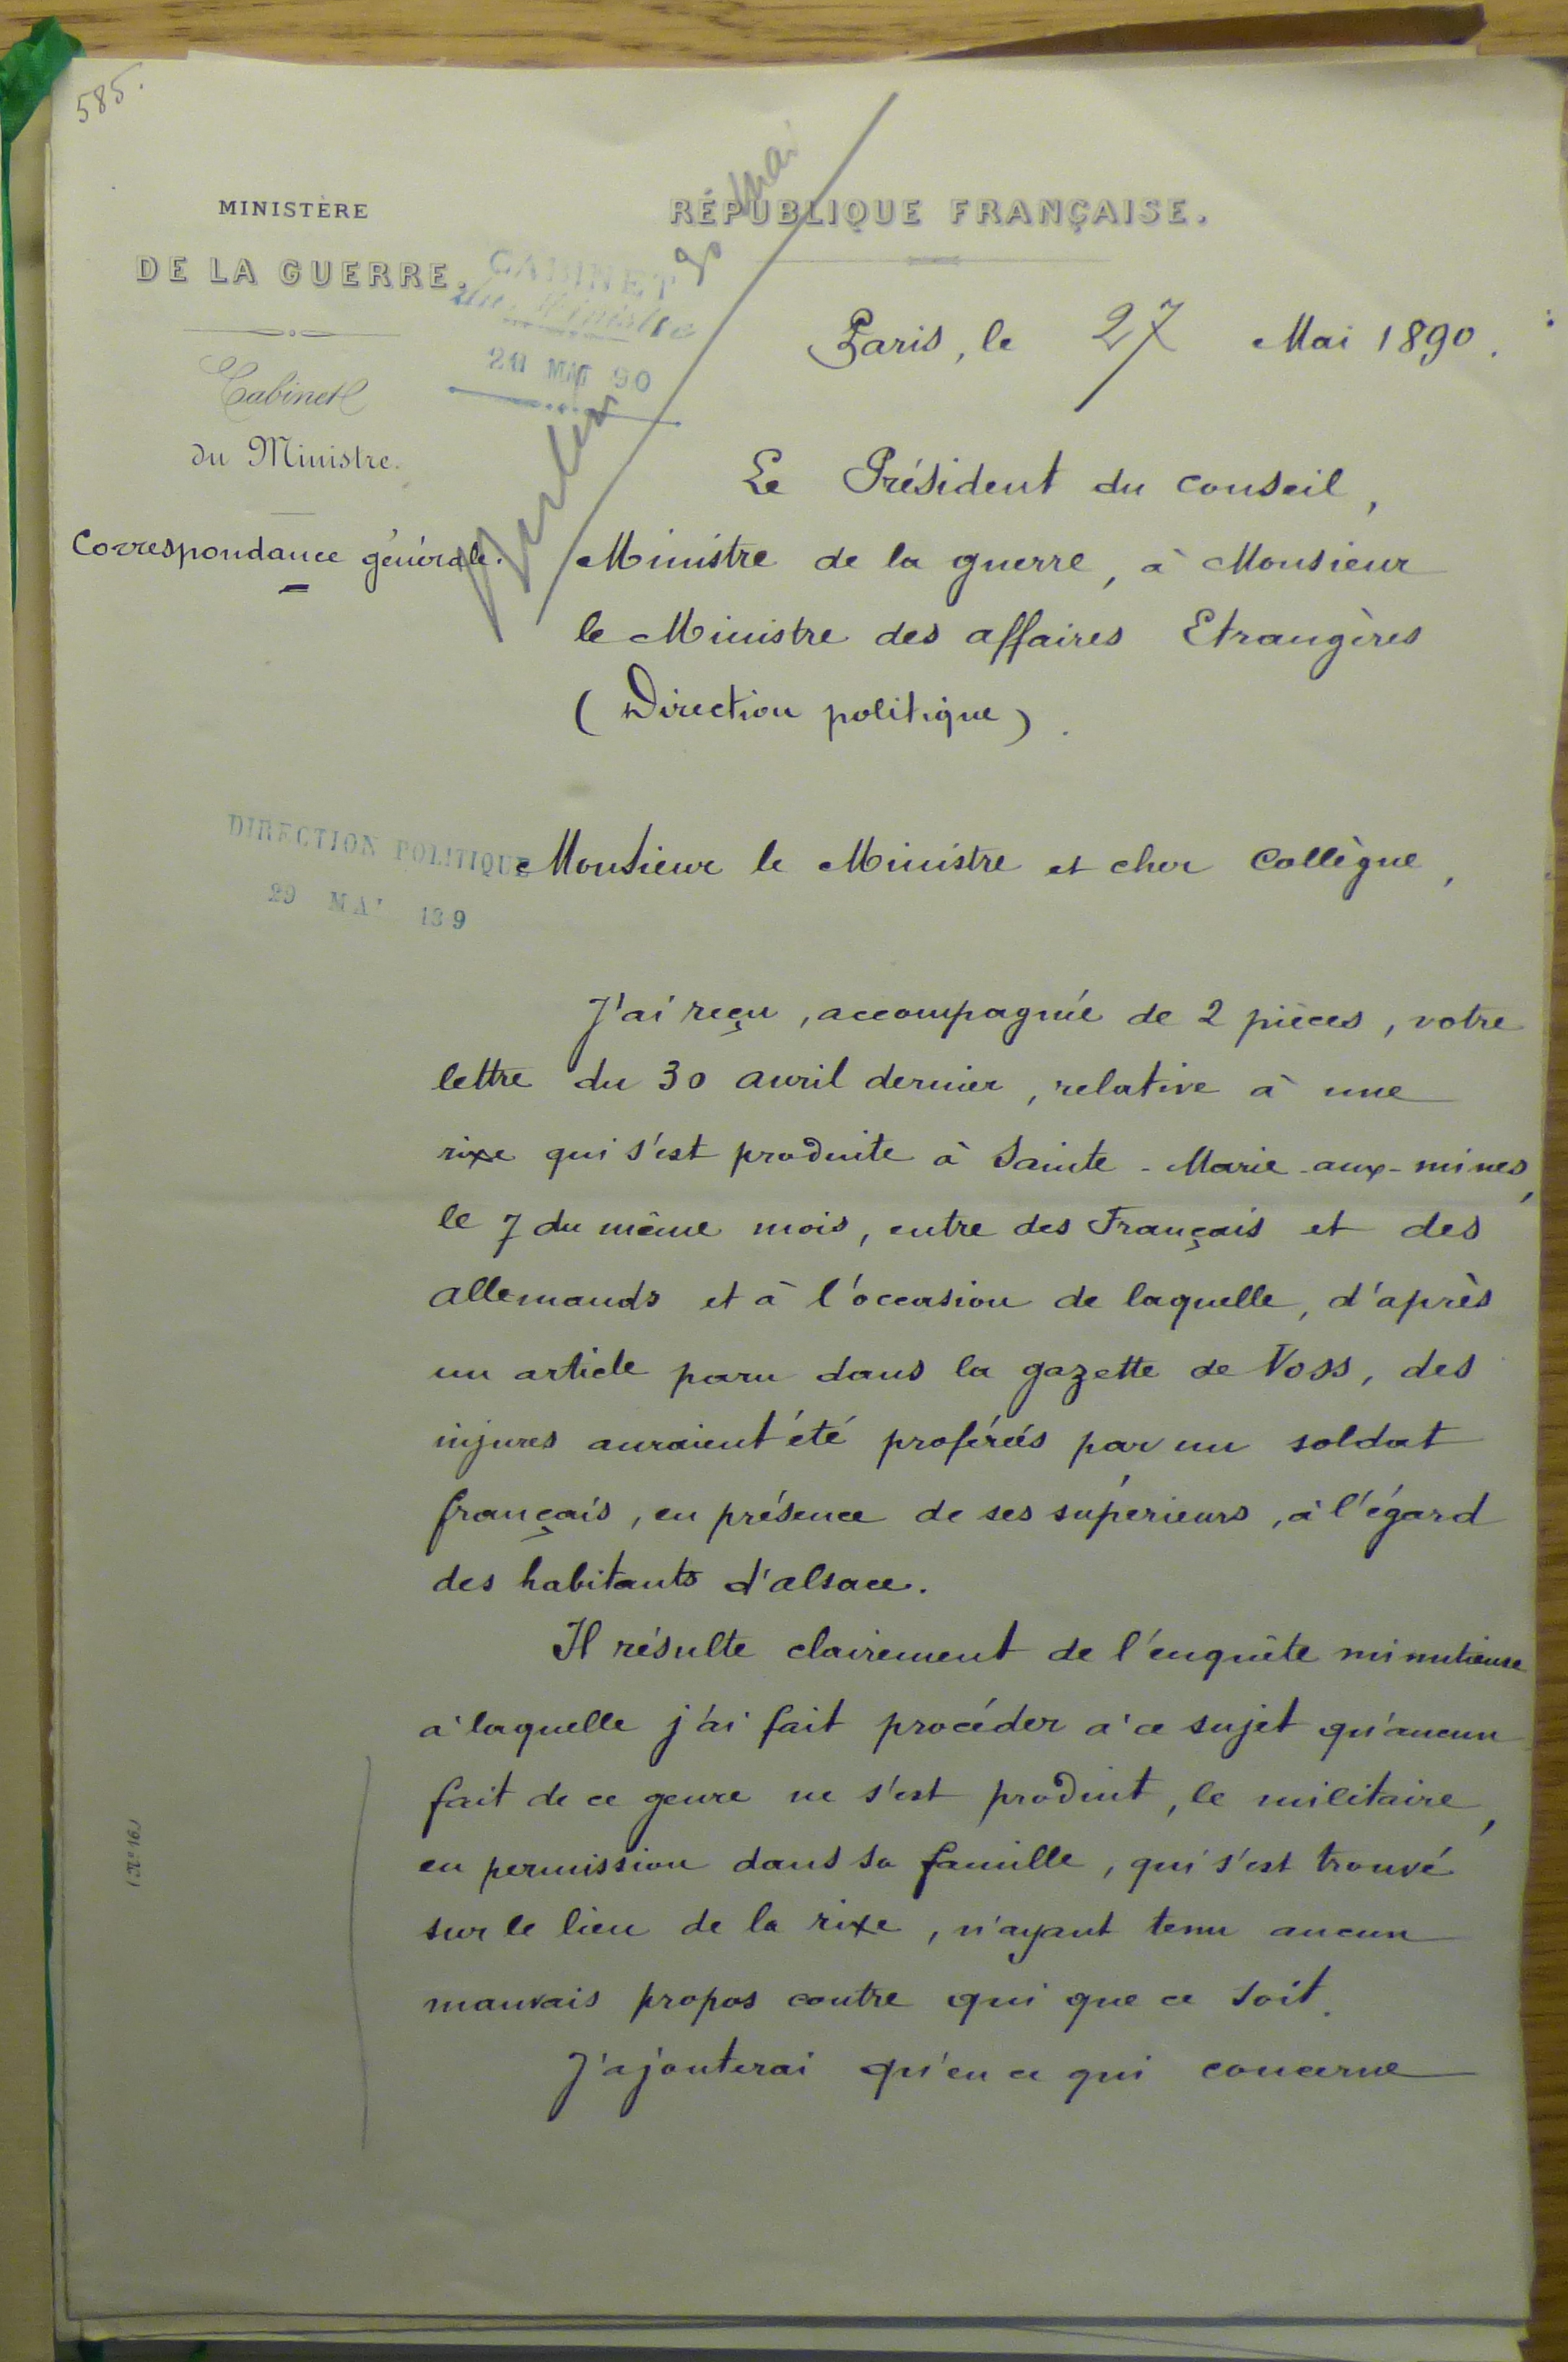 585.
MINISTÈRE
DE LA GUERRE.
Cabinet
du Ministre.
Correspondance générale.
CABINET
du Ministre
MAI 90
Berlin 30 Mai
RÉPUBLIQUE FRANÇAISE.
Paris, le 27 Mai 1890.
Le Président du Conseil,
Ministre de la guerre, à Monsieur
le Ministre des affaires Etrangères
(Direction politique).
DIRECTION POLITIQUE
29 MAI 189
Monsieur le Ministre et cher Collègue,
J'ai reçu, accompagnée de 2 pièces, votre
lettre du 30 avril dernier, relative à une
rixe qui s'est produite à Sainte-Marie-aux-mines,
le 7 du même mois, entre des Français et des
allemands et à l'occasion de laquelle, d'après
un article paru dans la gazette de Voss, des
injures auraient été proférées par un soldat
français, en présence de ses supérieurs, à l'égard
des habitants d'alsace.
Il résulte clairement de l'enquête minutieuse
à laquelle j'ai fait procéder à ce sujet qu'aucun
fait de ce genre ne s'est produit, le militaire,
en permission dans sa famille, qui s'est trouvé
sur le lieu de la rixe, n'ayant tenu aucun
mauvais propos contre qui que ce soit.
J'ajouterai qu'en ce qui concerne
(N° 16)